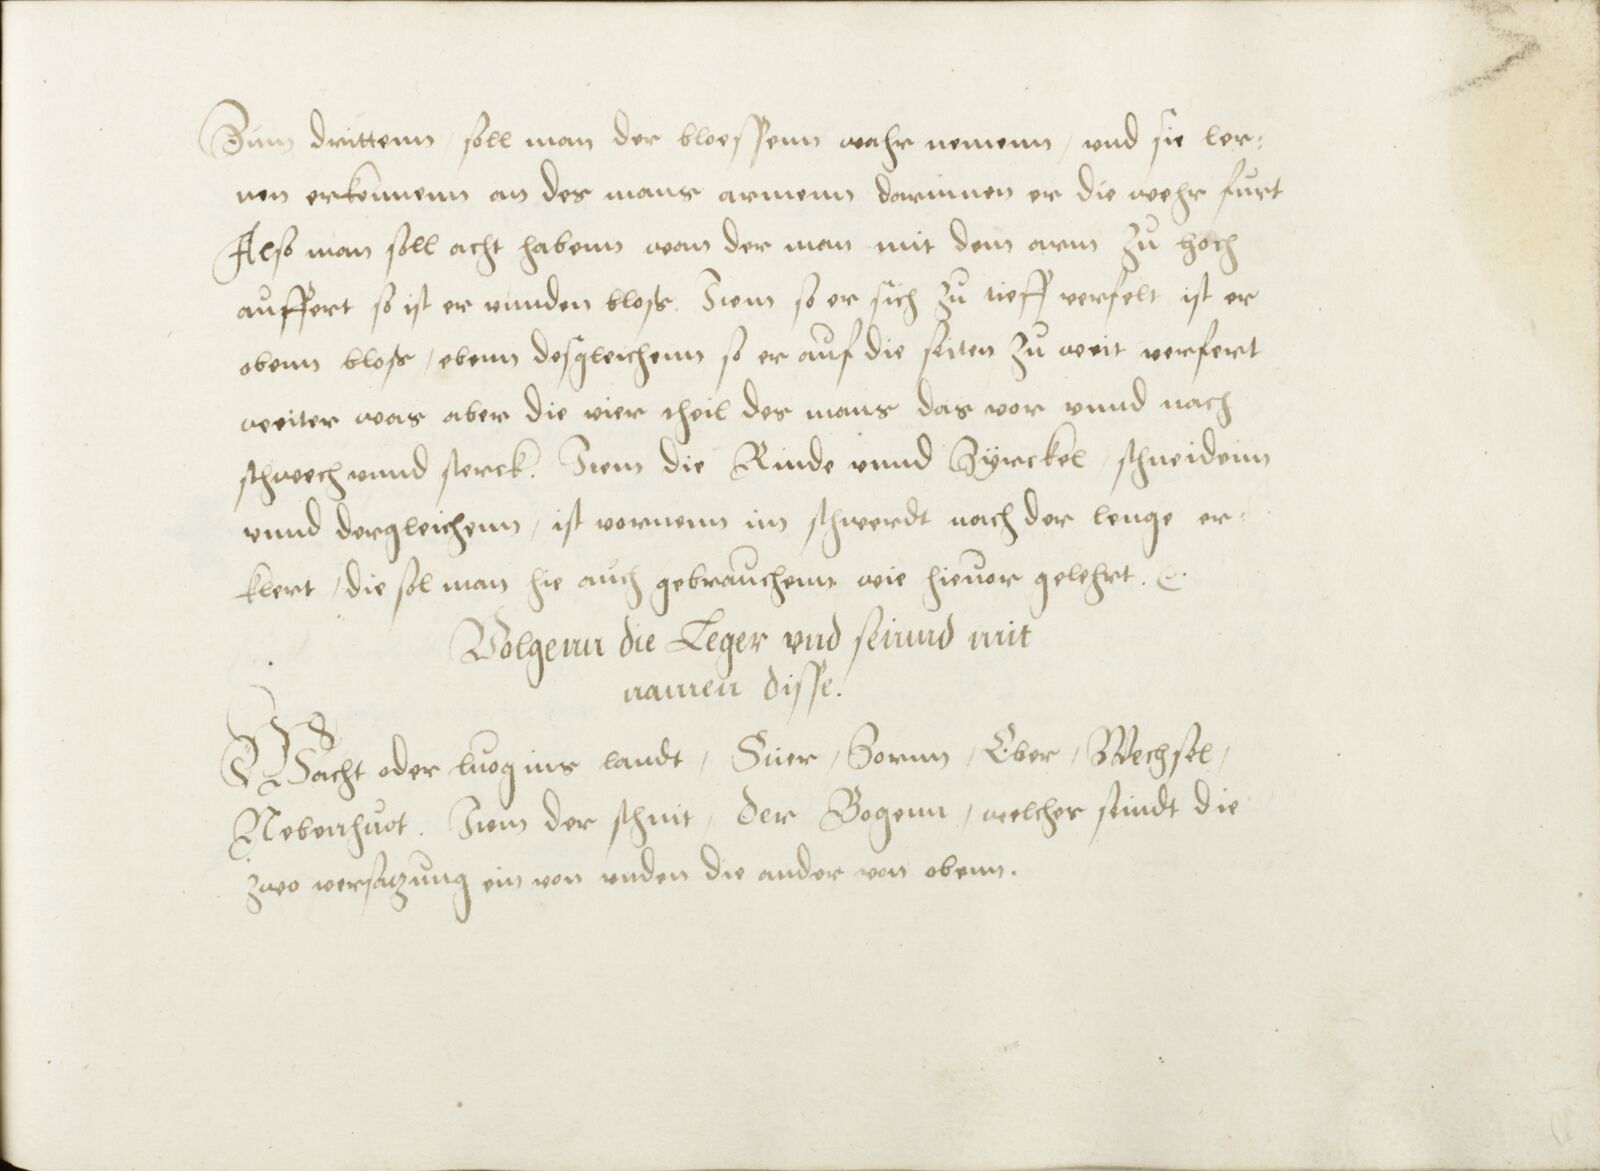 Zum drittenn / soll man der bloessenn wahr nemenn / vnd sie ler-
nen erkennenn an des mans armenn darinnen er die wehr furt
Also man soll acht habenn wan der man mit dem arm zu hoch
auffert so ist er vnnden bloss. Item so er sich zu tieff verfelt ist er
obenn bloss / ebenn desgleichenn so er auf die seiten zu weit verfert
weiter was aber die vier theil des mans das vor vnnd nach
schwech vnnd sterck. Item die Rinde vnnd Zyrckel / schneidenn
vnnd dergleichenn / ist vornenn im schwerdt nach der lenge er-
klert / die sol man hie auch gebrauchenn wie hieuor gelehrt.
Volgenn die Leger vnd seinnd mit
namen disse.
Wacht oder luog ins landt / Stier / Zornn / Eber / Wechsel /
Nebenhuot. Item der schnit / der Bogenn / welcher seindt die
zwo versatzung ein von vnden die ander von obenn.